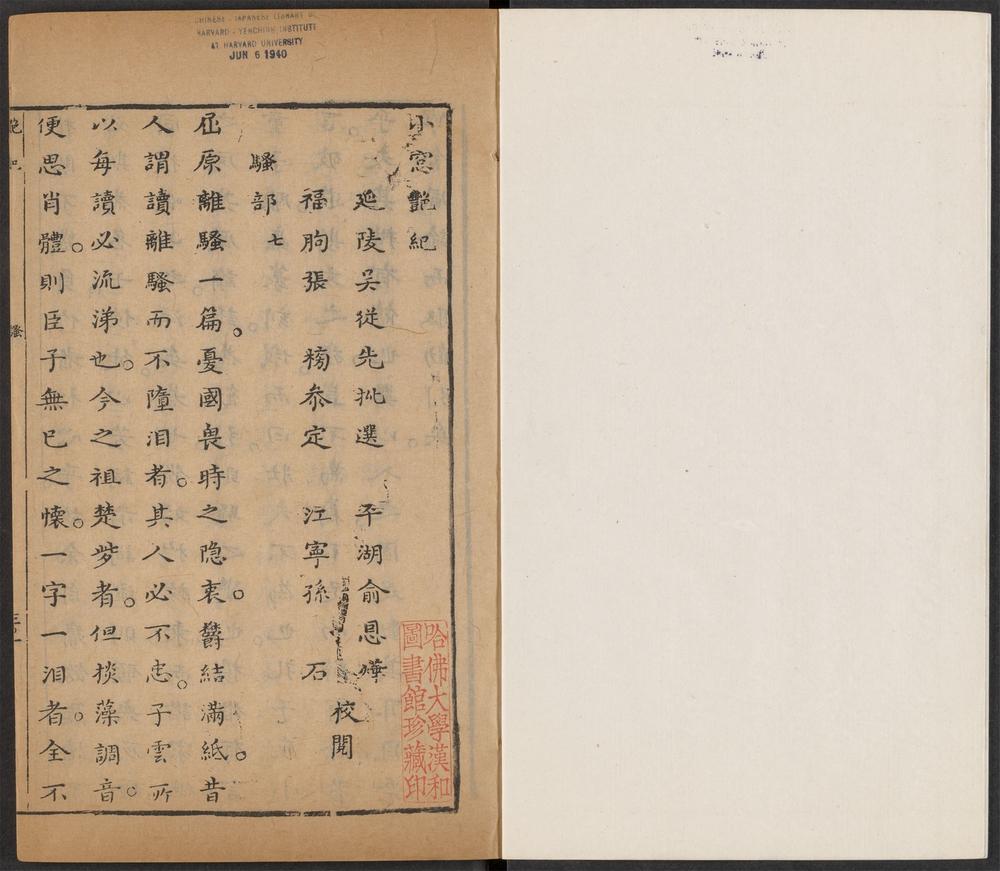 CHINESE - JAPANESE LIBRARY OF
HARVARD - YENCHING INSTITUTE
AT HARVARD UNIVERSITY
JUN 6 1940
小窓艶紀
延陵吴從先批選　平湖俞恩燁
福朐張　榜叅定　江寧孫　石
校閲
騷部七
屈原離騷一篇。憂國畏時之隐衷。欝結滿紙。昔
人謂讀離騷而不墮泪者。其人必不忠。子雲所
以每讀必流涕也。今之祖楚辤者。但掞藻調音。
便思肖體。則臣子無已之懷。一字一泪者。全不
騷
哈佛大學漢和
圖書館珍藏印